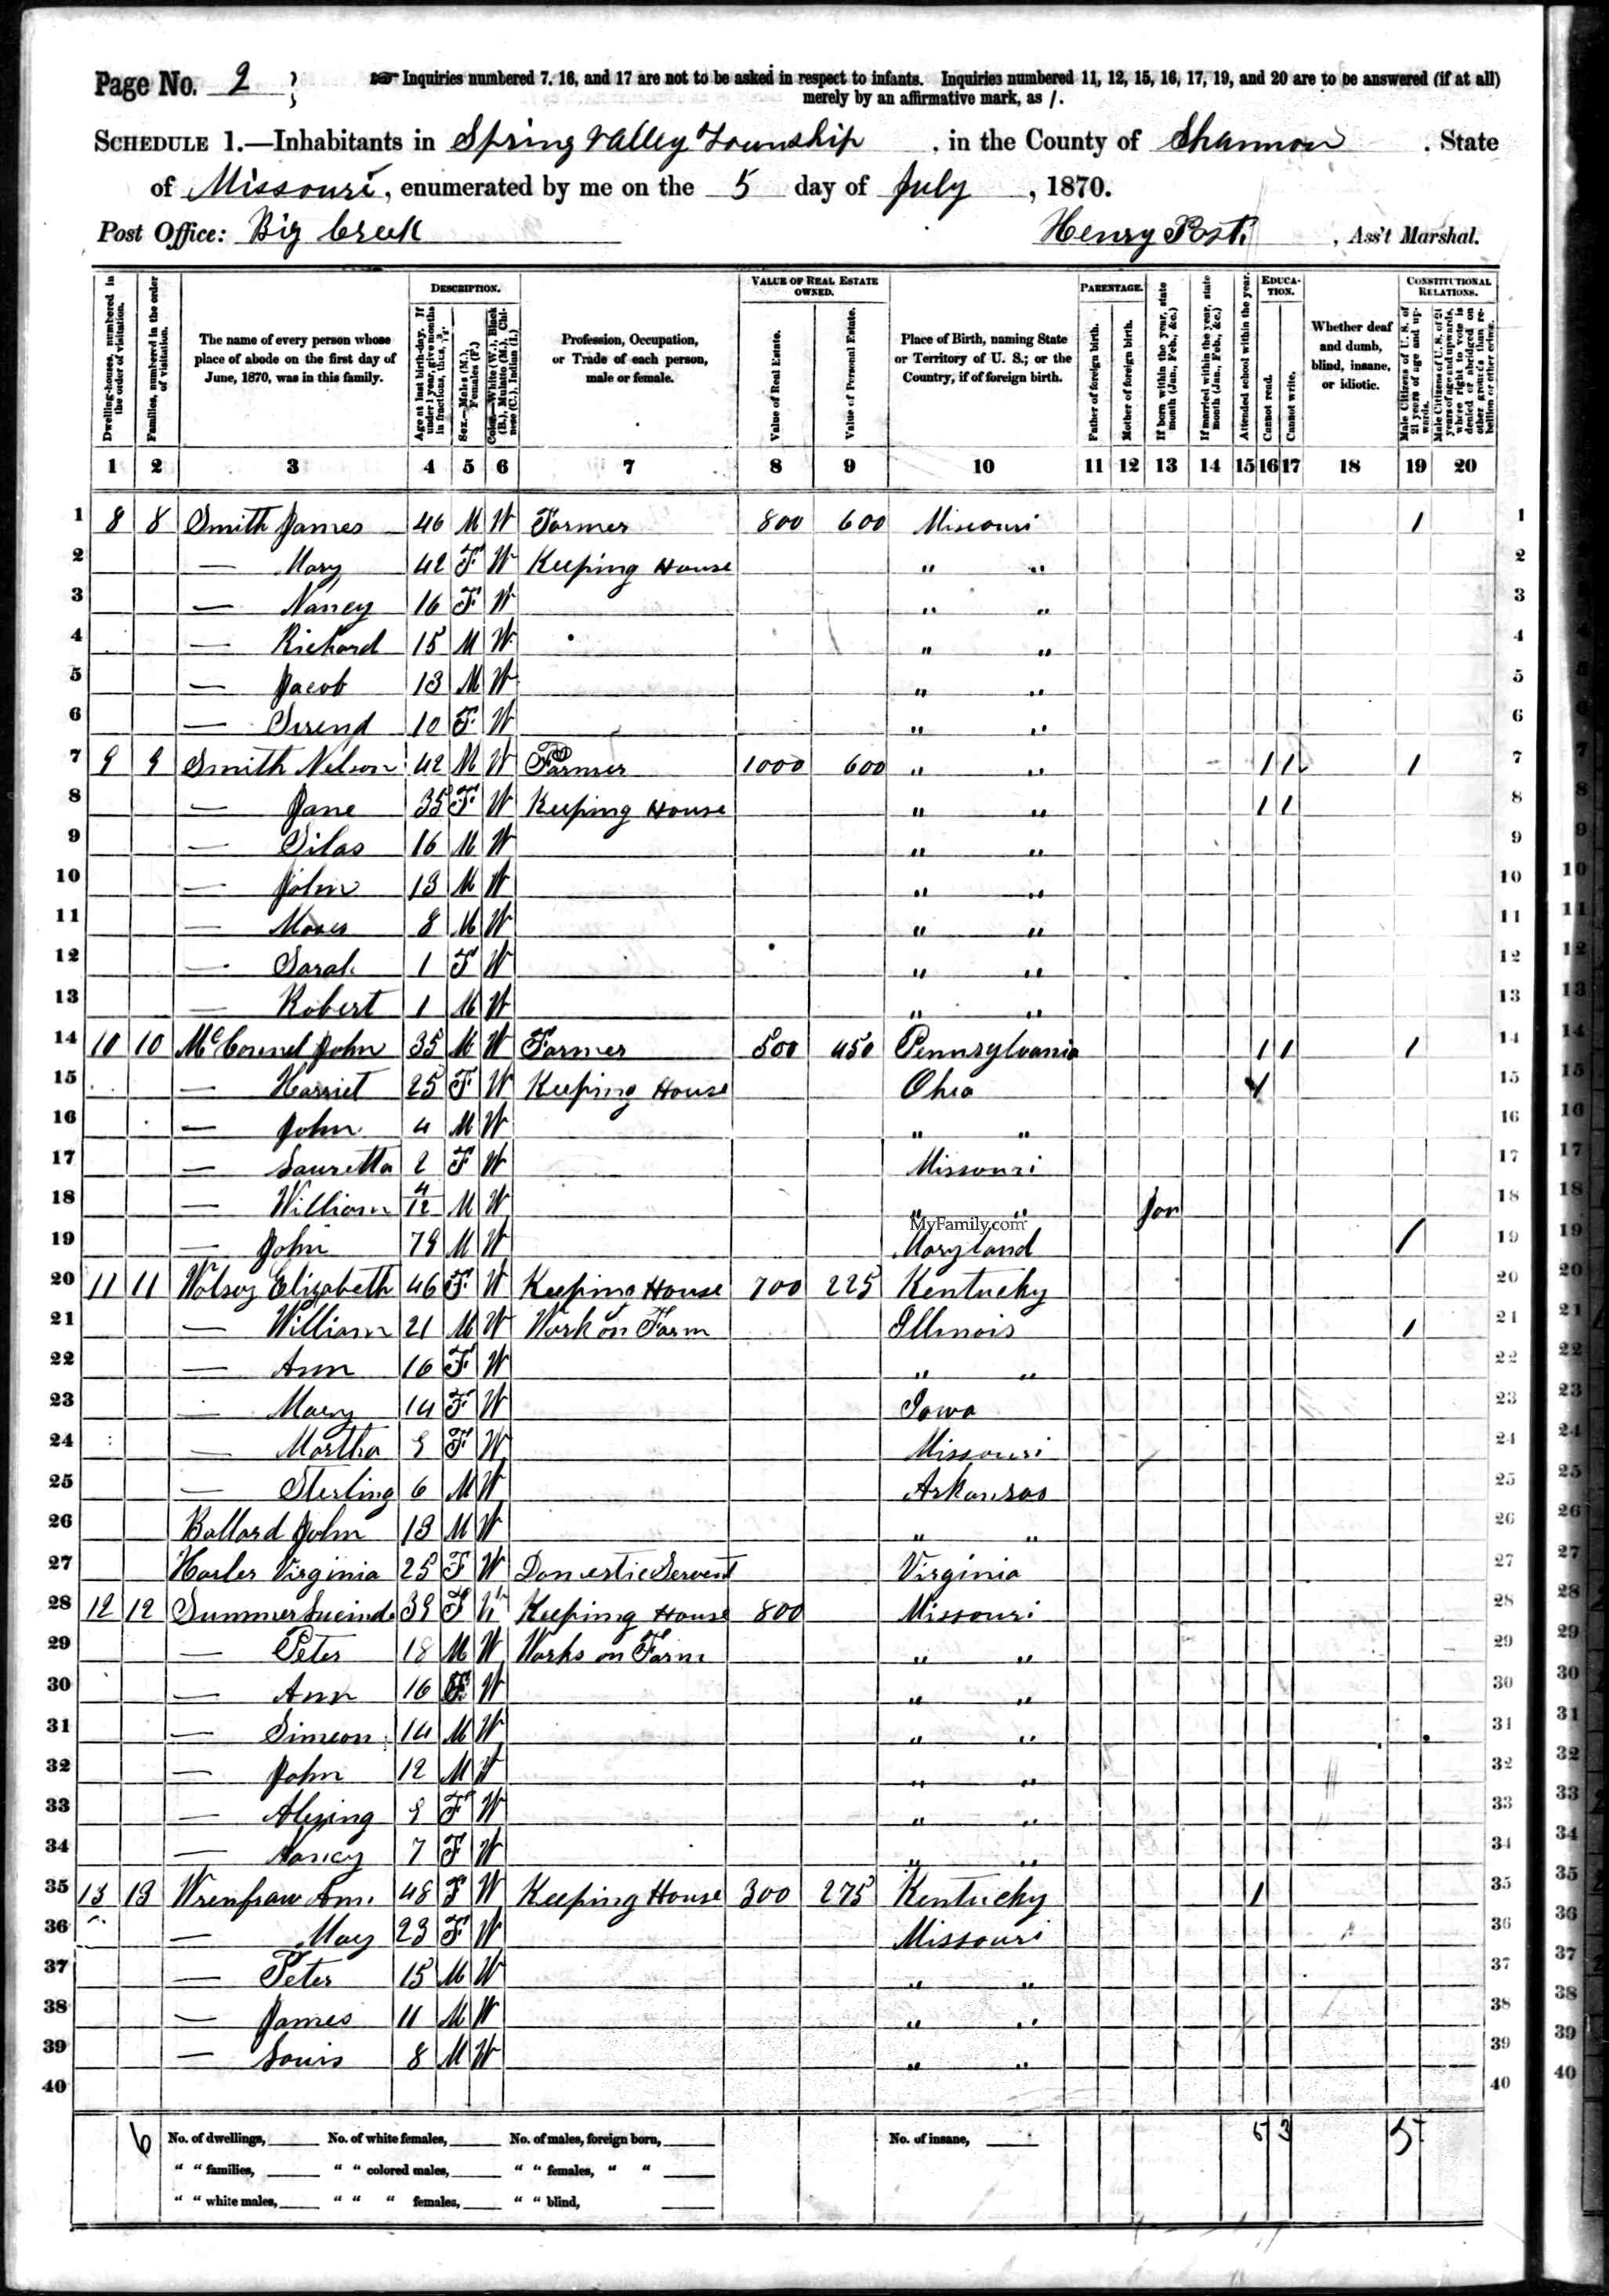 Page No. 2
Inquiries numbered 7, 16, and 17 are not to be asked in respect to infants. Inquiries numbered 11, 12, 15, 16, 17, 19, and 20 are to be answered (if at all)
merely by an affirmative mark, as /.
SCHEDULE 1.—Inhabitants in Spring Valley Township, in the County of Shannon. State
of Missouri, enumerated by me on the 5 day of July, 1870.
Post Office: Big Creek Henry Post, Ass't Marshal.
Dwelling-houses, numbered in the order of visitation.
Families, numbered in the order of visitation.
The name of every person whose place of abode on the first day of June, 1870, was in this family.
DESCRIPTION.
Age at last birth-day. If under 1 year, give months in fractions, thus, 3/12.
Sex.—Males (M.), Females (F.)
Color.—White (W.), Black (B.), Mulatto (M.), Chinese (C.), Indian (I.)
Profession, Occupation, or Trade of each person, male or female.
VALUE OF REAL ESTATE OWNED.
Value of Real Estate.
Value of Personal Estate.
Place of Birth, naming State or Territory of U. S.; or the Country, if of foreign birth.
PARENTAGE.
Father of foreign birth.
Mother of foreign birth.
If born within the year, state month (Jan., Feb., &c.)
If married within the year, state month (Jan., Feb., &c.)
Attended school within the year.
EDUCATION.
Cannot read.
Cannot write.
Whether deaf and dumb, blind, insane, or idiotic.
CONSTITUTIONAL RELATIONS.
Male Citizens of U. S. of 21 years of age and upwards.
Male Citizens of U. S. of 21 years of age and upwards, where right to vote is denied or abridged on other grounds than rebellion or other crime.
1 2 3 4 5 6 7 8 9 10 11 12 13 14 15 16 17 18 19 20
1 8 8 Smith James 46 M W Farmer 800 600 Missouri 1 1
2 — Mary 42 F W Keeping House " " 2
3 — Nancy 16 F W " " 3
4 — Richard 15 M W " " 4
5 — Jacob 13 M W " " 5
6 — 10 F W " " 6
7 9 9 Smith Nelson 42 M W Farmer 1000 600 " " 1 1 1 7
8 — Jane 35 F W Keeping House " " 1 1 8
9 — Silas 16 M W " " 9
10 — John 13 M W " " 10
11 — Moses 8 M W " " 11
12 — Sarah 1 F W " " 12
13 — Robert 1 M W " " 13
14 10 10 McConnel John 35 M W Farmer 500 450 Pennsylvania 1 1 1 14
15 — Harriet 25 F W Keeping House Ohio 1 15
16 — John 4 M W " " 16
17 — Lauretta 2 F W Missouri 17
18 — William 4/12 M W " " Jan 18
MyFamily.com
19 — John 79 M W Maryland 1 19
20 11 11 Wolsey Elizabeth 46 F W Keeping House 700 225 Kentucky 20
21 — William 21 M W Work on Farm Illinois 1 21
22 — Ann 16 F W " " 22
23 — Mary 14 F W Iowa 23
24 — Martha 9 F W Missouri 24
25 — Sterling 6 M W Arkansas 25
26 Ballard John 13 M W " " 26
27 Harler Virginia 25 F W Domestic Servent Virginia 27
28 12 12 Summer Lucinda 39 F W Keeping House 800 Missouri 28
29 — Peter 18 M W Works on Farm " " 29
30 — Ann 16 F W " " 30
31 — Simeon 14 M W " " 31
32 — John 12 M W " " 32
33 — 9 F W " " 33
34 — Nancy 7 F W " " 34
35 13 13 Wrenfraw Ann 48 F W Keeping House 300 275 Kentucky 1 35
36 — May 23 F W Missouri 36
37 — Peter 15 M W " " 37
38 — James 11 M W " " 38
39 — Louis 8 M W " " 39
40 40
6 No. of dwellings, No. of white females, No. of males, foreign born, No. of insane, 5 3 5
" " families, " " colored males, " " females, " "
" " white males, " " " females, " " blind,